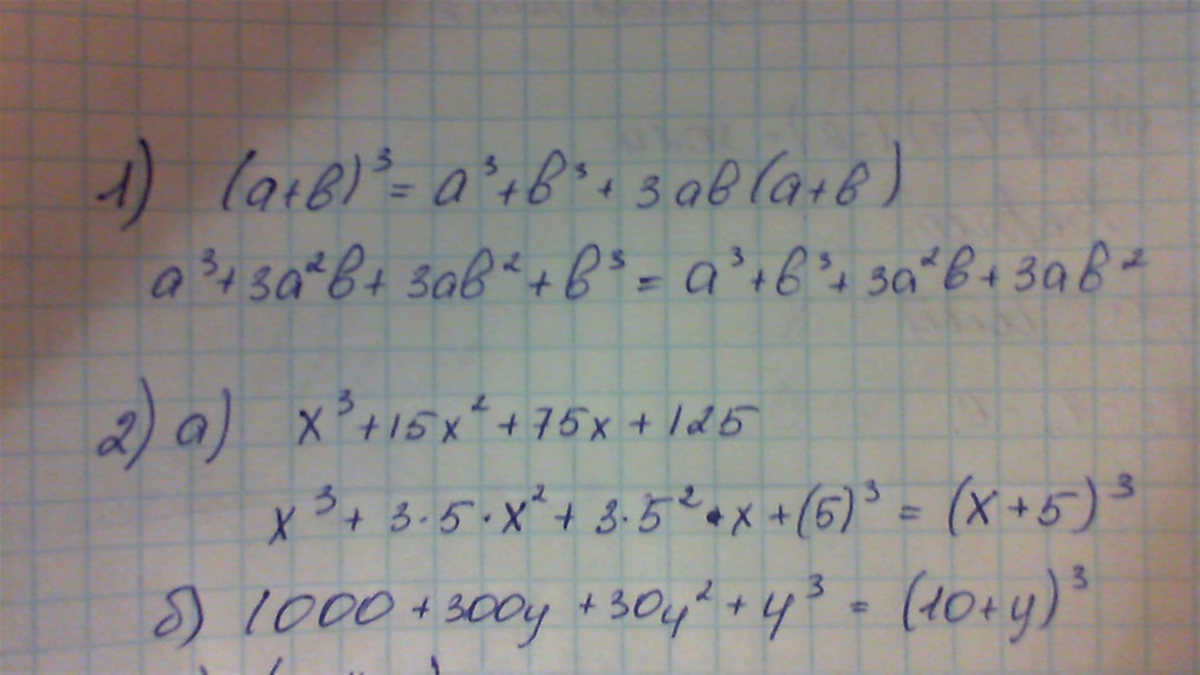 1) (a+b)³ = a³+b³+3ab(a+b)
a³+3a²b+3ab²+b³ = a³+b³+3a²b+3ab²
2) а) x³+15x²+75x+125
x³+3·5·x²+3·5²·x+(5)³ = (x+5)³
б) 1000+300y+30y²+y³ = (10+y)³